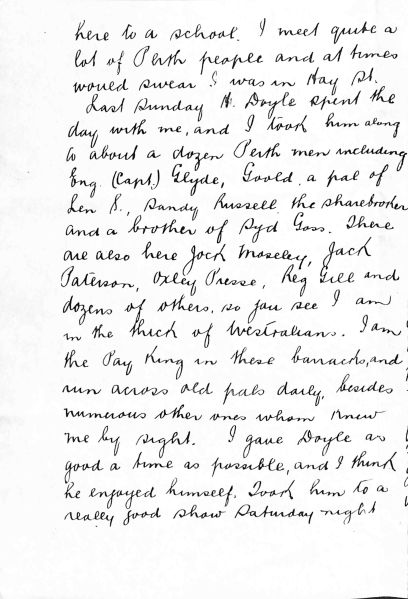 here to a school. I meet quite a
lot of Perth people and at times
would swear I was in Hay St.
Last Sunday H. Doyle spent the
day with me, and I took him along
to about a dozen Perth men including
Eng. (Capt.) Glyde, Goold a pal of
Len S., Sandy Russell the sharebroker
and a brother of Syd Goss. There
are also here Jock Moseley, Jack
Paterson, Oxley Presse, Reg Gill and
dozens of others, so you see I am
in the thick of Westralians. I am
the Pay King in these barracks, and
run across old pals daily, besides
numerous other ones whom knew
me by sight. I gave Doyle as
good a time as possible, and I think
he enjoyed himself. Took him to a
really good show Saturday night